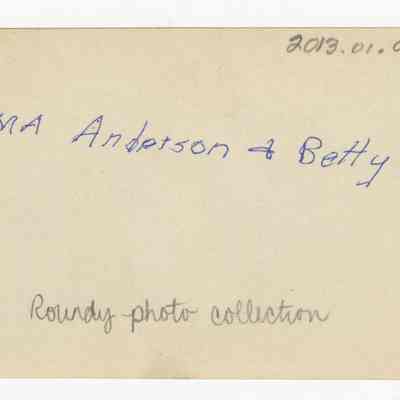 2013.01.0
MA Anderson & Betty
Roundy photo collection